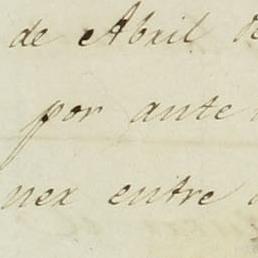 de Abril de
por ante
nex entre